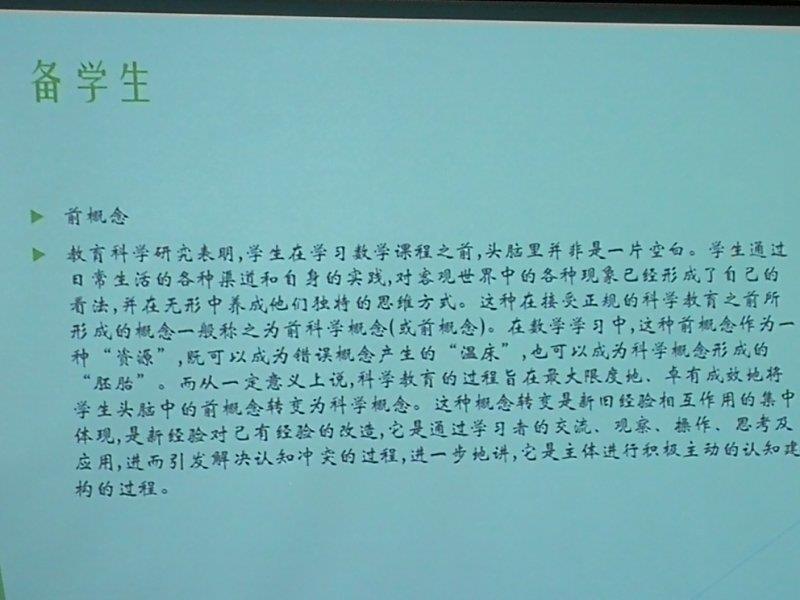 备学生
前概念
教育科学研究表明,学生在学习数学课程之前,头脑里并非是一片空白。学生通过
日常生活的各种渠道和自身的实践,对客观世界中的各种现象已经形成了自己的
看法,并在无形中养成他们独特的思维方式。这种在接受正规的科学教育之前所
形成的概念一般称之为前科学概念(或前概念)。在数学学习中,这种前概念作为一
种“资源”,既可以成为错误概念产生的“温床”,也可以成为科学概念形成的
“胚胎”。而从一定意义上说,科学教育的过程旨在最大限度地、卓有成效地将
学生头脑中的前概念转变为科学概念。这种概念转变是新旧经验相互作用的集中
体现,是新经验对已有经验的改造,它是通过学习者的交流、观察、操作、思考及
应用,进而引发解决认知冲突的过程,进一步地讲,它是主体进行积极主动的认知建
构的过程。